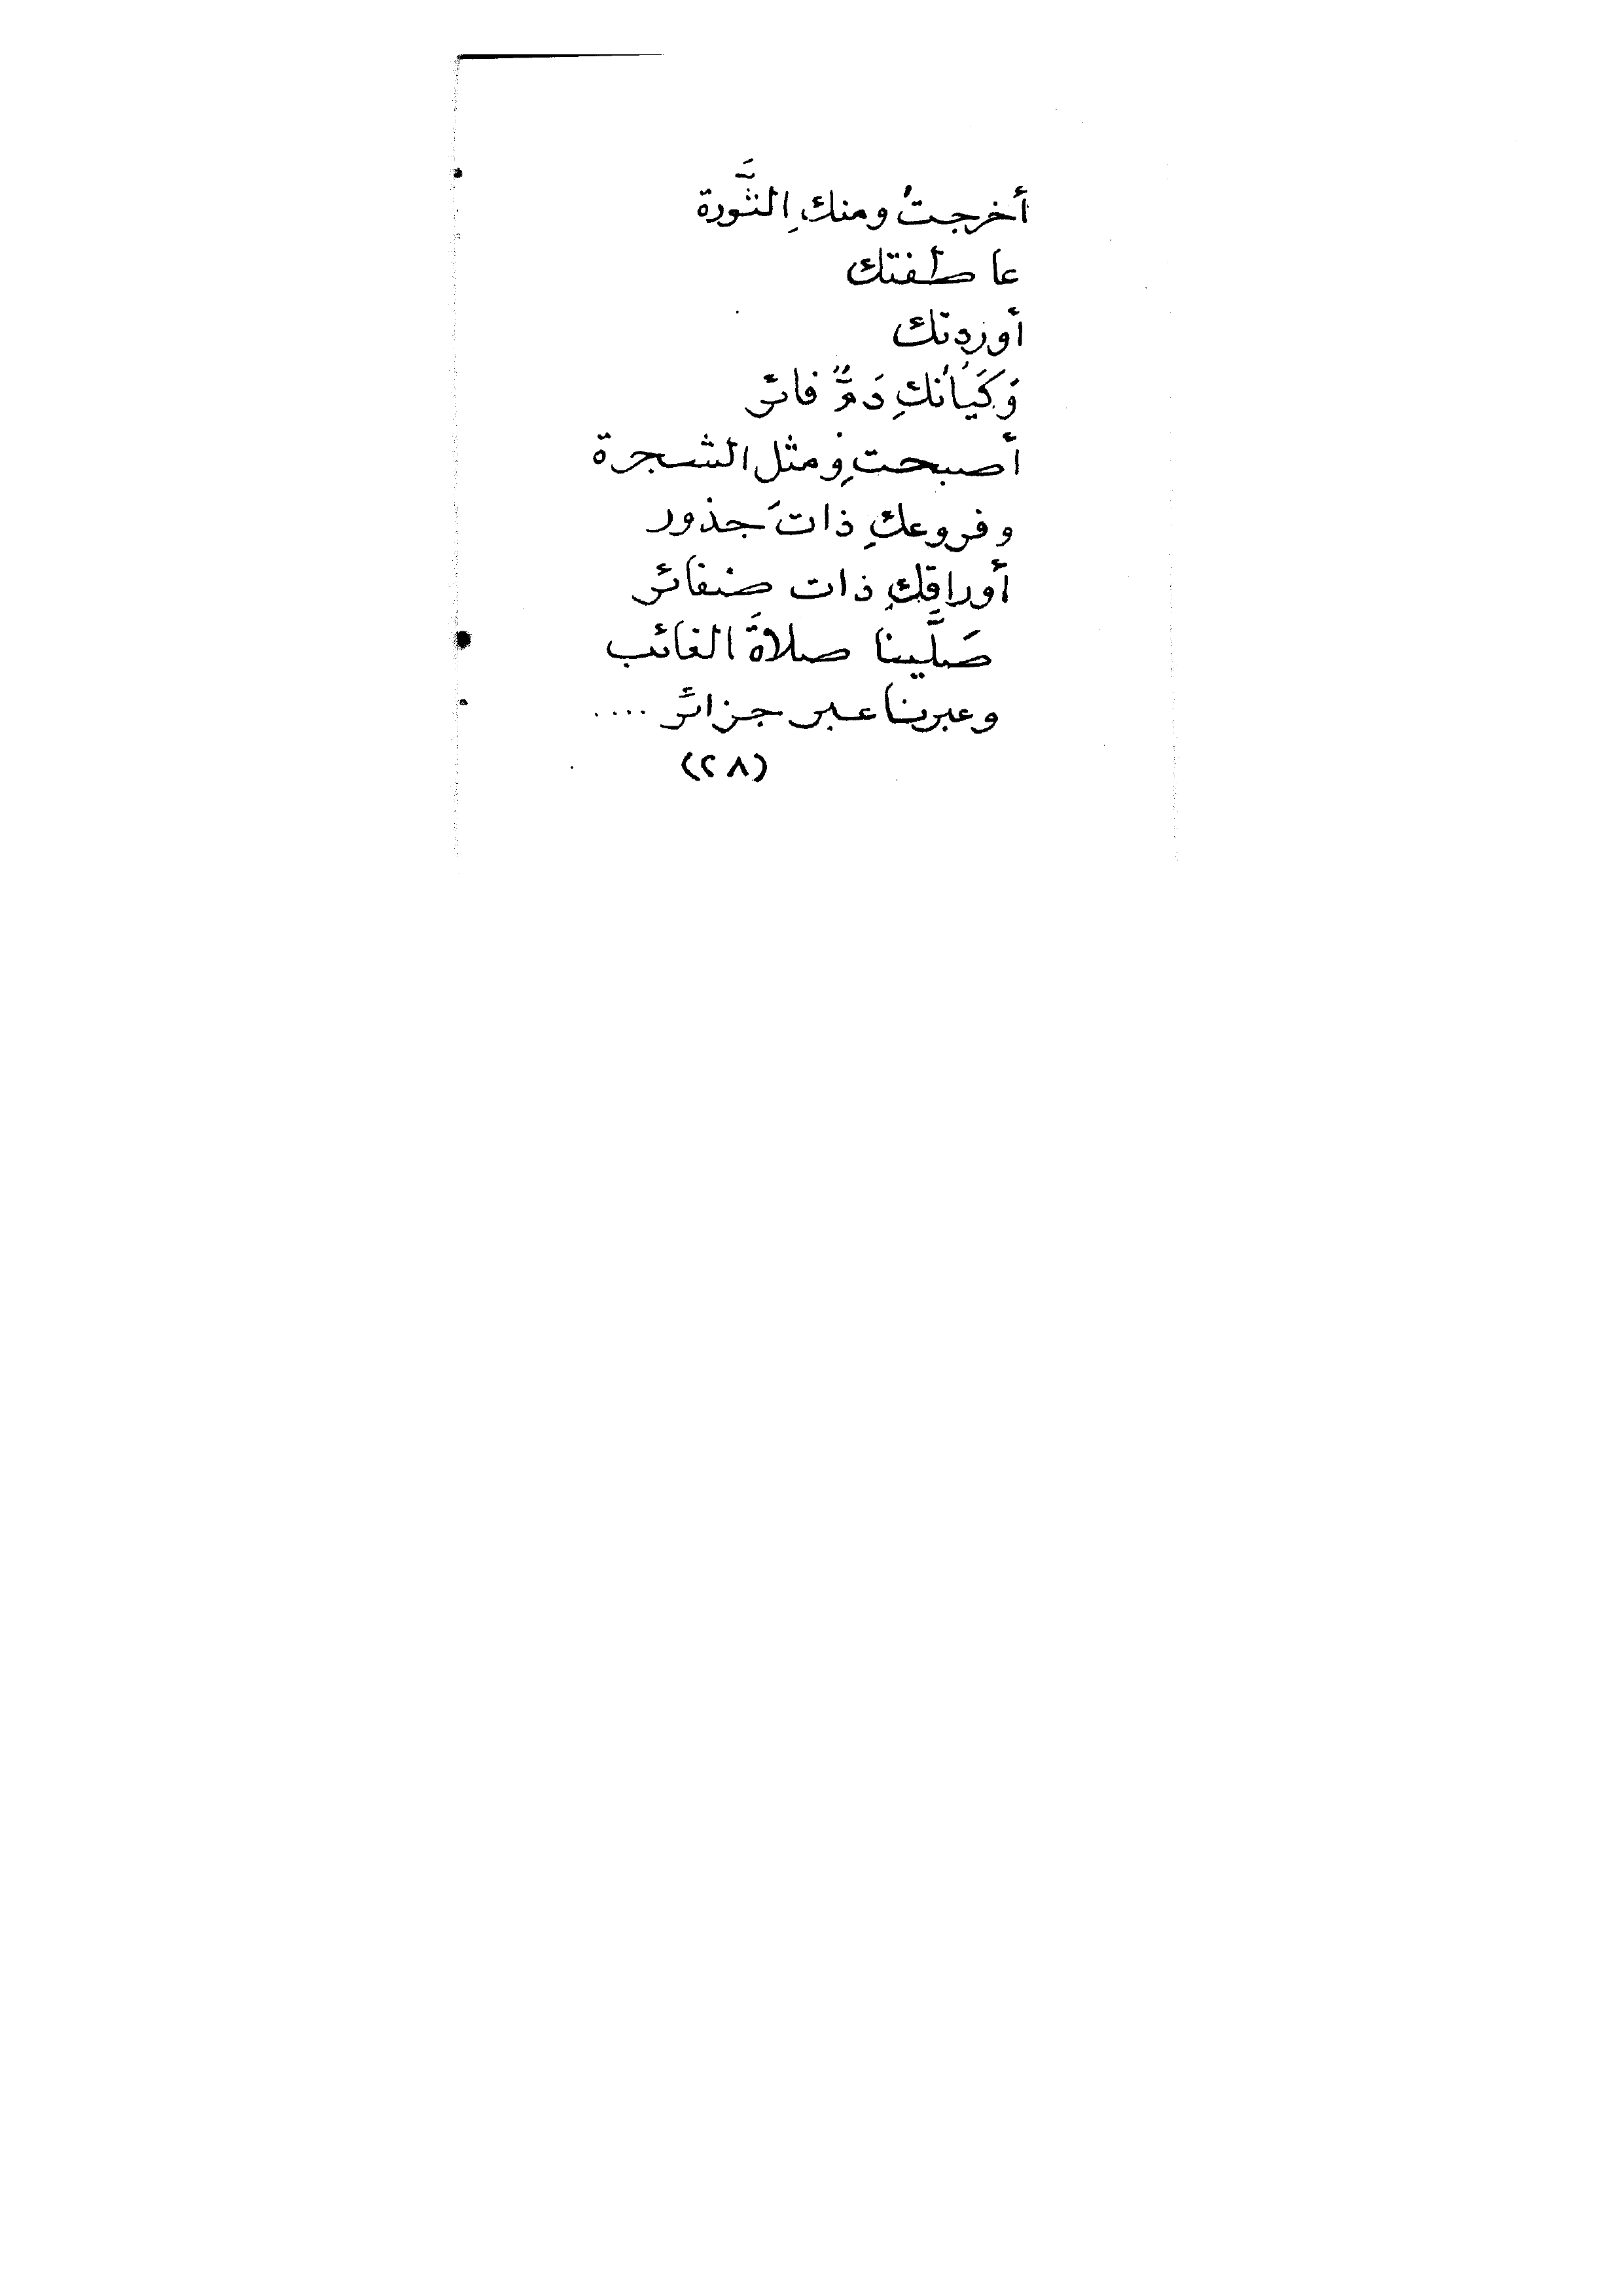 أخرجتُ ومنكِ الثَّورة
عاطفتك
أوردتك
وَكَيَانُكِ دَمٌّ فائر
أصبحتِ ومثل الشجرة
وفروعكِ ذاتَ جذور
أوراقكِ ذات ضفائر
صَلَّينا صلاةَ الغائب
وعبرنا عبر جزائر ....
(٢٨)